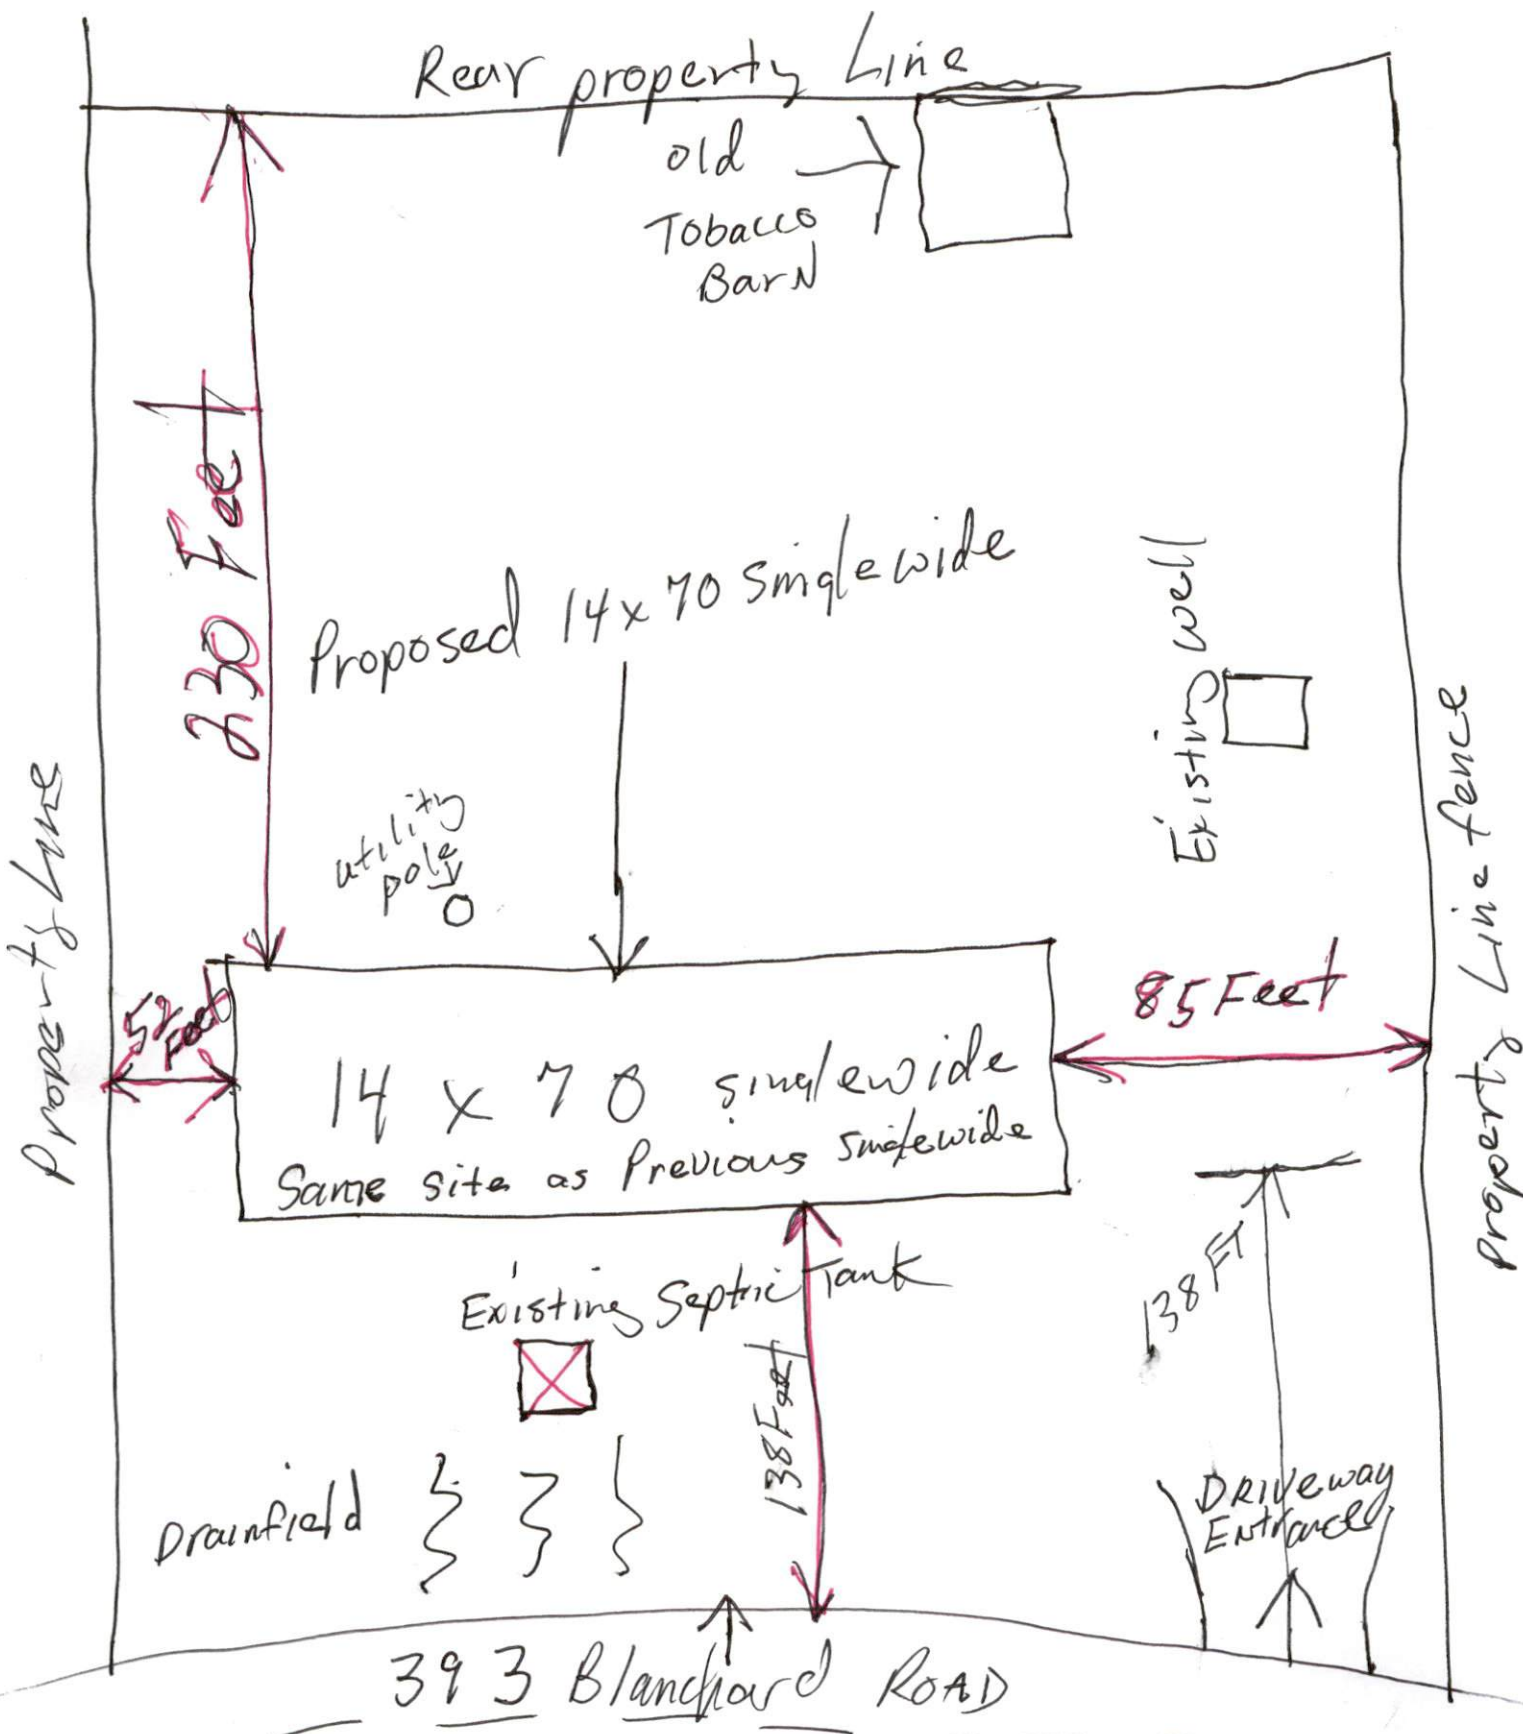 Rear property Line
old
Tobacco
Barn
230 Feet
Proposed 14x70 Singlewide
Existing well
utility
pole
Property Line
Property Line fence
52
Feet
85 Feet
14 x 70 singlewide
Same site as Previous Singlewide
138 FT
Existing Septic Tank
138 Feet
Drainfield
DRIVEway
Entrance
393 Blanchard ROAD